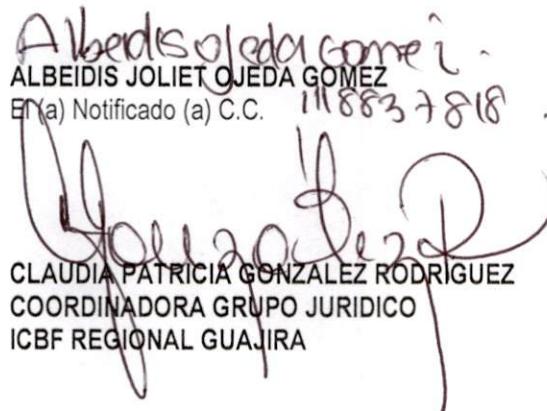 Albeidis ojeda gomez.
ALBEIDIS JOLIET OJEDA GOMEZ
El (a) Notificado (a) C.C. 1118837818.
Gonzalez R
CLAUDIA PATRICIA GONZALEZ RODRIGUEZ
COORDINADORA GRUPO JURIDICO
ICBF REGIONAL GUAJIRA